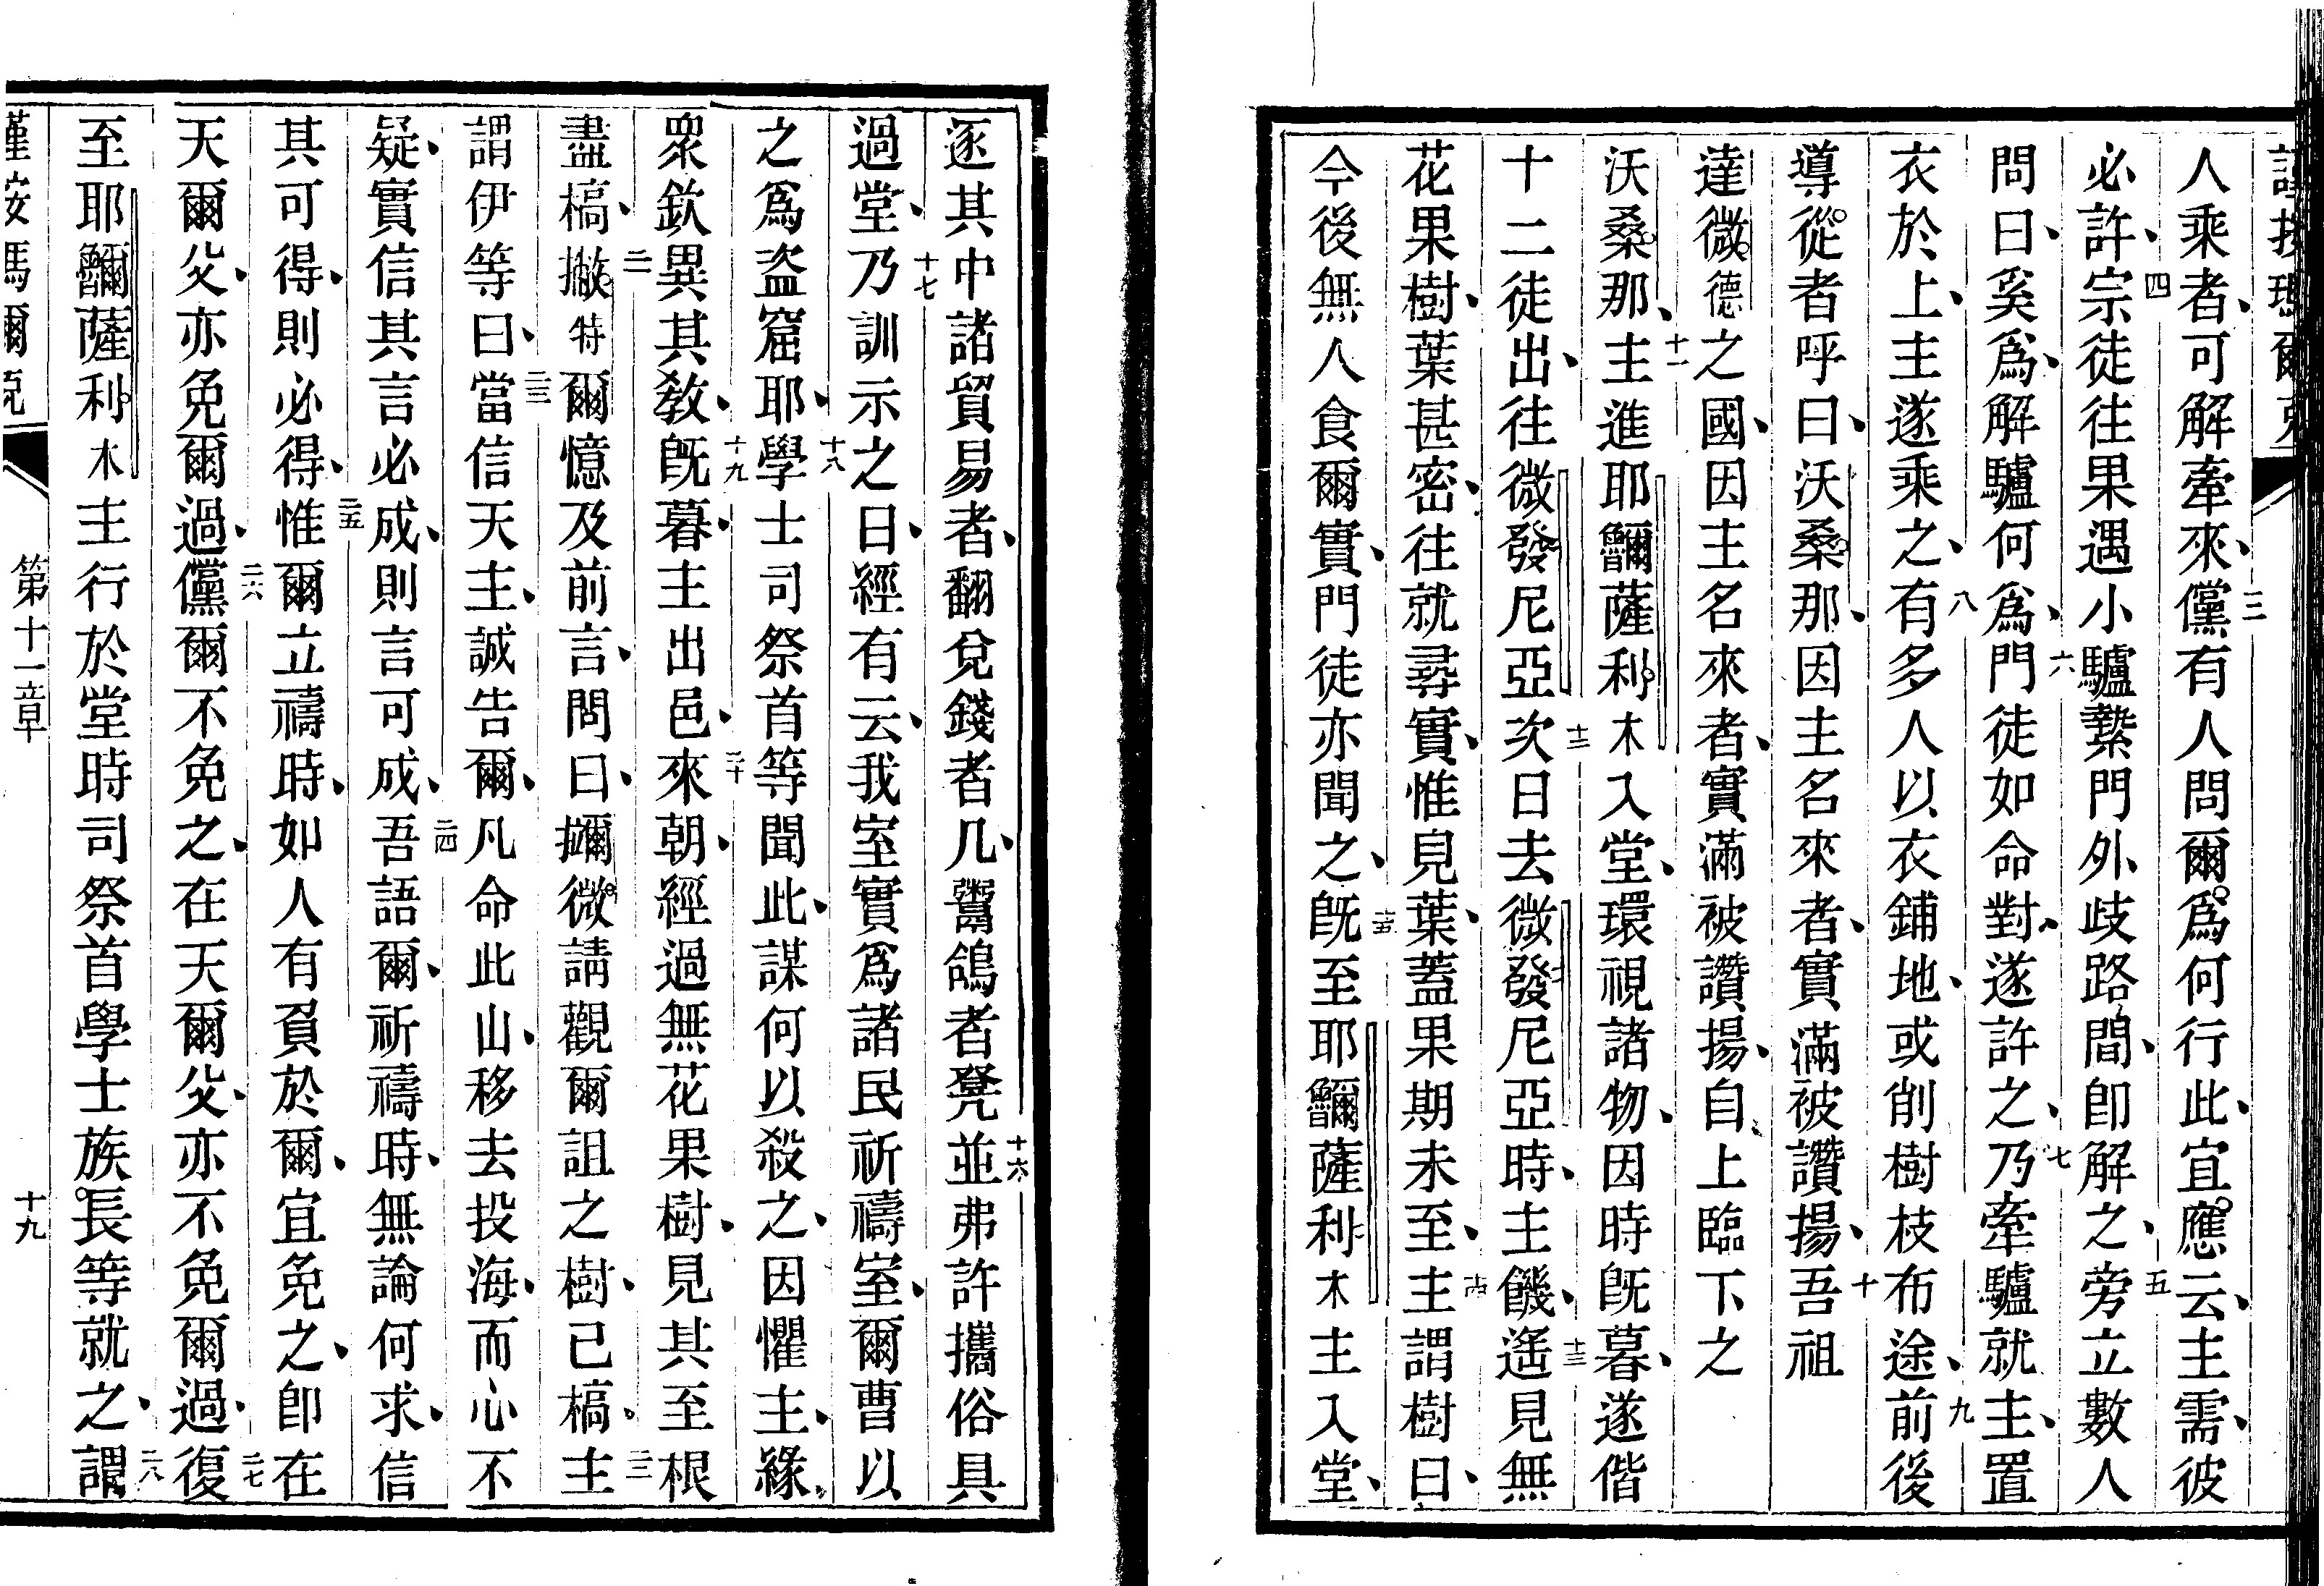 謹按瑪爾克
人乘者、可解牽來、三儻有人問爾爲何行此、宜應云、主需、彼
必許、四宗徒往果遇小驢縶門外歧路間、卽解之、五旁立數人
問曰、奚爲、解驢何爲、六門徒如命對、遂許之、七乃牽驢就主、置
衣於上、主遂乘之、八有多人以衣鋪地、或削樹枝布途、九前後
導從者呼曰、沃桑那、因主名來者、實滿被讚揚、十吾祖
達微德之國、因主名來者、實滿被讚揚、自上臨下之
沃桑那、十一主進耶𮭹薩利木入堂、環視諸物、因時旣暮、遂偕
十二徒出、往微發尼亞、十二次日去微發尼亞時、主饑、十三遙見無
花果樹、葉甚密、往就尋實、惟見葉、蓋果期未至、十四主謂樹曰、
今後無人食爾實、門徒亦聞之、十五旣至耶𮭹薩利木主入堂、
逐其中諸貿易者、翻兌錢者几、鬻鴿者凳、十六並弗許攜俗具
過堂、十七乃訓示之曰、經有云、我室實爲諸民祈禱室、爾曹以
之爲盜窟耶、十八學士司祭首等聞此、謀何以殺之、因懼主、緣
衆欽異其教、十九旣暮、主出邑、二十來朝、經過無花果樹、見其至根
盡槁、二一撇特爾憶及前言、問曰、𭡮微請觀爾詛之樹、已槁、二二主
謂伊等曰、二三當信天主、誠吿爾、凡命此山、移去投海、而心不
疑、實信其言必成、則言可成、二四吾語爾、祈禱時、無論何求、信
其可得、則必得、二五惟爾立禱時、如人有負於爾、宜免之、卽在
天爾父、亦免爾過、二六儻爾不免之、在天爾父、亦不免爾過、二七復
至耶𮭹薩利木主行於堂時司祭首學士族長等就之、二八謂
謹按瑪爾克 第十一章 十九